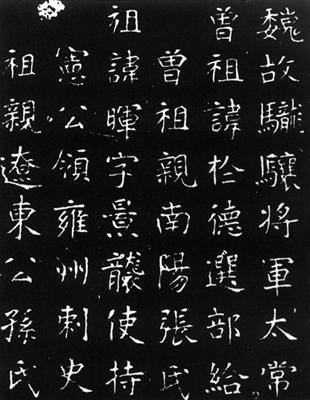 魏故䮾驤將軍太常
曾祖諱扵德選部給
曾祖親南陽張氏
祖諱暉字景襲使持
憲公領雍州刺史
祖親遼東公孫氏